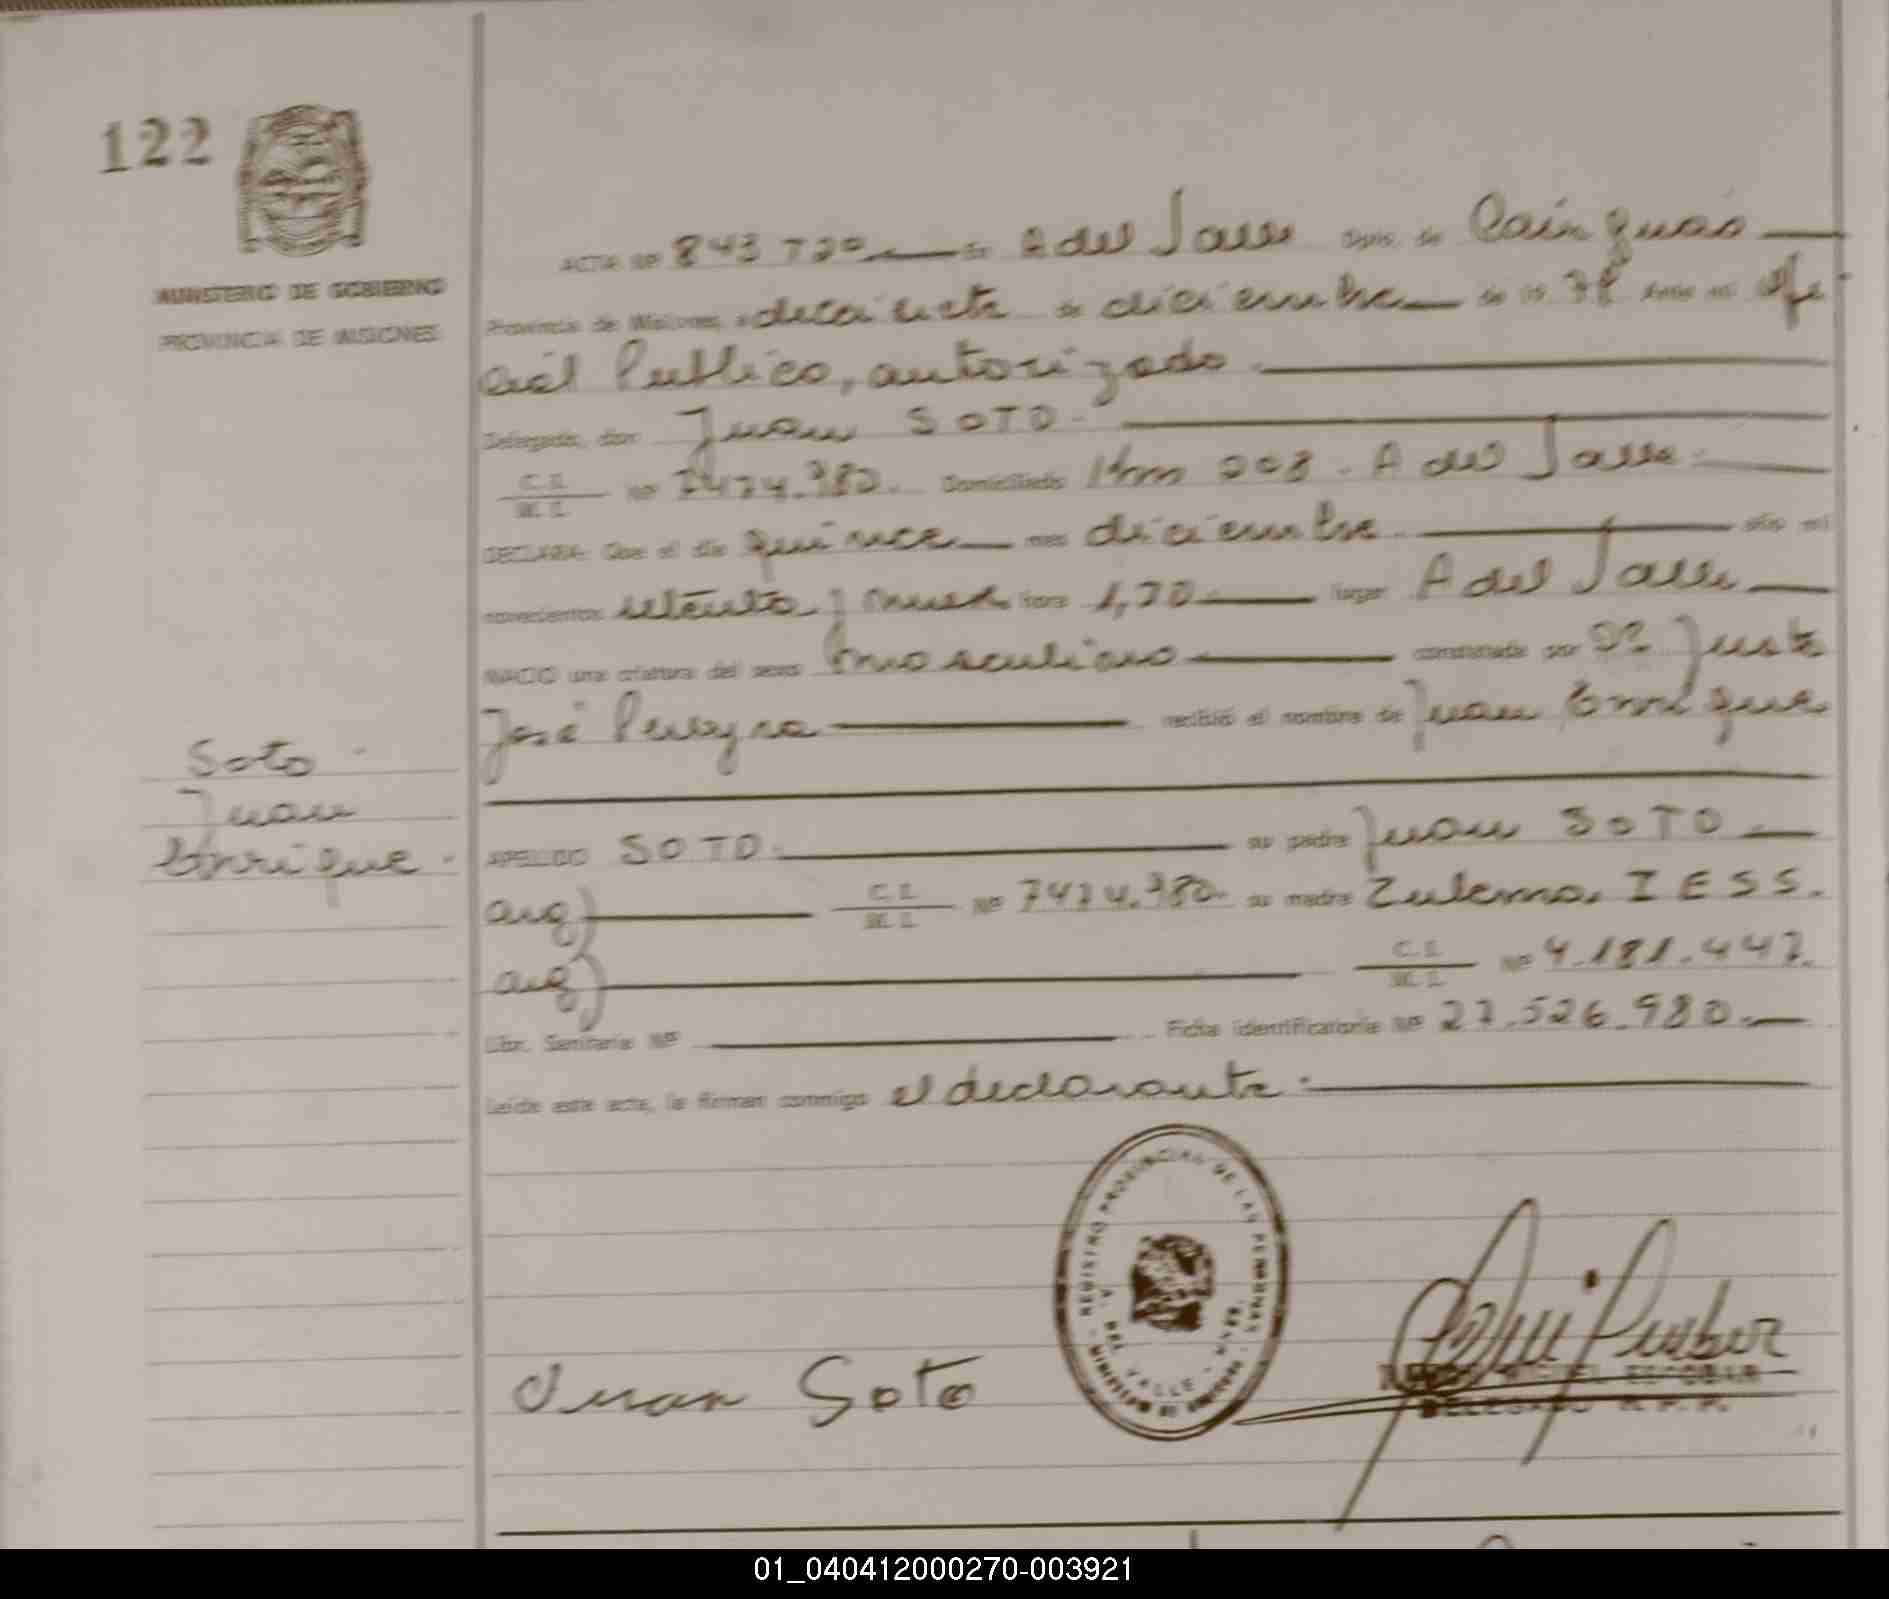 122
MINISTERIO DE GOBIERNO
PROVINCIA DE MISIONES
ACTA Nº de A del Valle Dpto. de Cainguás
Provincia de Misiones, a diecisiete de diciembre de 19 79 Ante mi Ofi
cial Publico, autorizado
Delegado, don Juan SOTO.
C. I.
M. I. Nº 7474.980. Domiciliado Km 208. A del Valle.
DECLARA: Que el día quince mes diciembre año mil
novecientos setenta y nueve hora lugar A del Valle
NACIO una criatura del sexo masculino constatada por Juste
José Pereyra recibió el nombre de Juan Enrique
Soto
Juan
Enrique.
APELLIDO SOTO. su padre Juan SOTO
arg) C. I.
M. I. Nº 7474.980. su madre Zulema IESS.
arg) C. I.
M. I. Nº 4.181.447.
Libr. Sanitaria Nº Ficha identificatoria Nº 27.526.980.
Leída este acta, la firman conmigo el declarante.
REGISTRO PROVINCIAL DE LAS PERSONAS
A. DEL VALLE
Juan Soto
MIGUEL ESCOBAR
DELEGADO R. P. P.
01_040412000270-003921